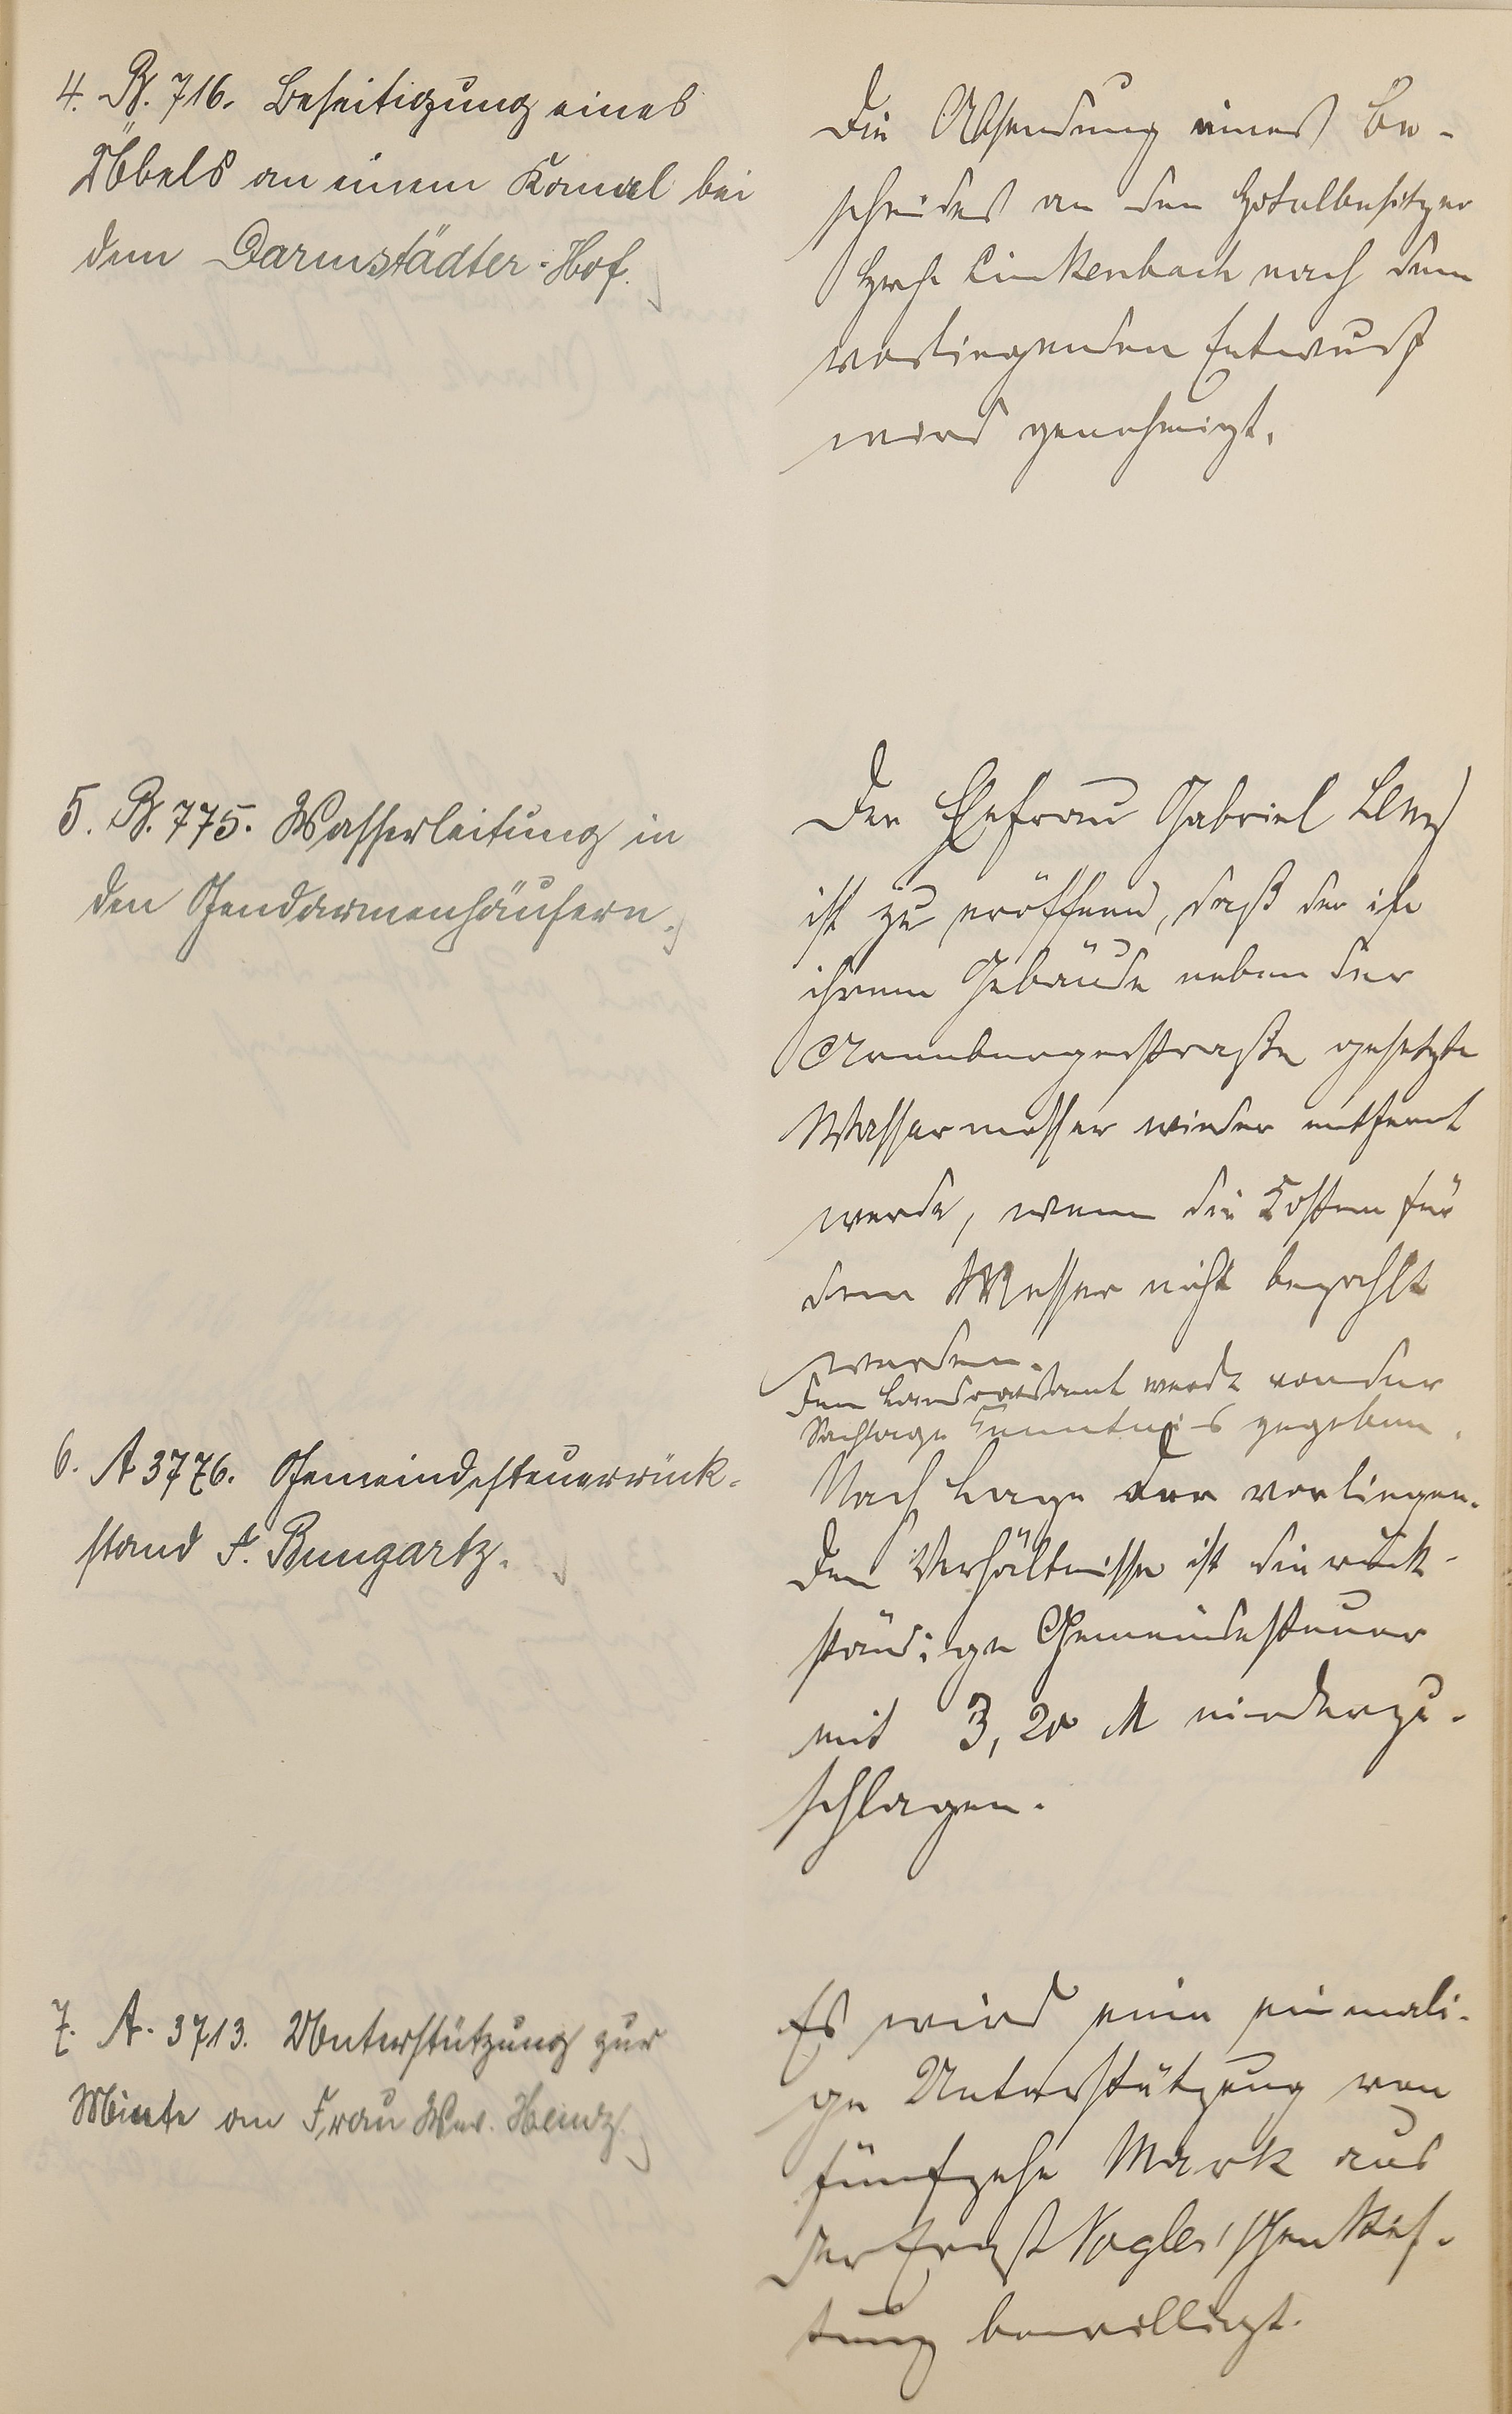 4. B. 716. Beseitigung eines
Übels an einem Kanal bei
dem Darmstädter-Hof.
Die Absendung eines Be-
scheides an den Hotelbesitzer
Linkenbach nach dem
vorliegenden Entwurf
wird genehmigt.
5. B. 775. Wasserleitung in
den Gendarmenhäusern.
Der Ehefrau Gabriel
ist zu eröffnen, daß der in
ihrem Gebäude neben der
gesetzte
Wassermesser wieder entfernt
werde, wenn die Kosten für
den Messer nicht bezahlt
werden.
Dem Landratsamt werde von der
Sachlage Kenntnis gegeben.
6. A 3776. Gemeindesteuerrück-
stand F. Bungartz.
Nach Lage der vorliegen-
den Verhältnisse ist die rück-
ständige Gemeindesteuer
mit 3,20 M niederzu-
schlagen.
7. A. 3713. Unterstützung zur
Miete an Frau Ww. Heinz.
Es wird eine einmali-
ge Unterstützung von
fünfzehn Mark aus
der Ernst Vogler'schen Stif-
tung bewilligt.